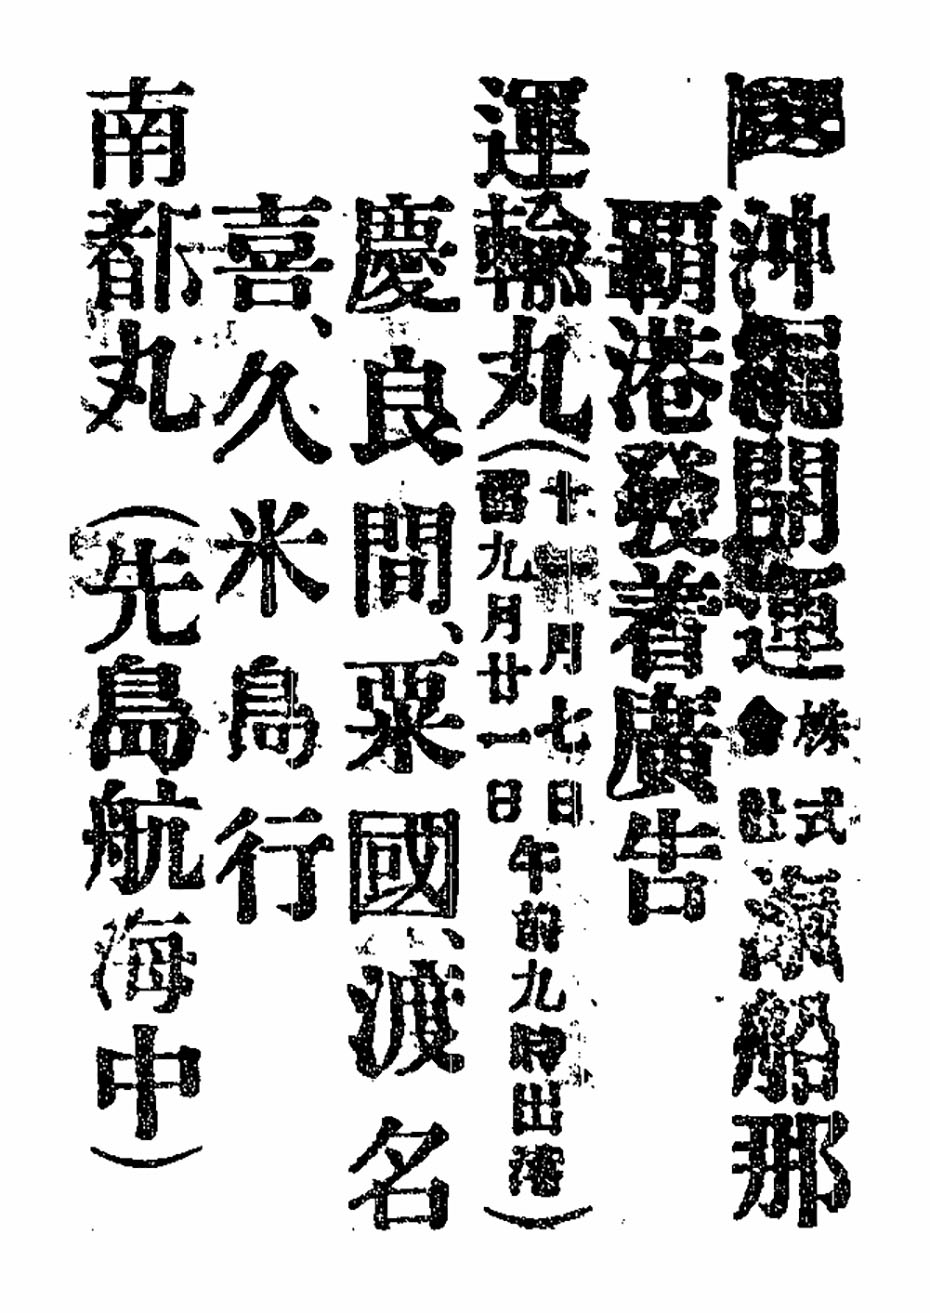 沖縄開運株式會社滊船那
覇港發着廣告
運輸丸(十一月七日舊九月廿一日午前九時出港)
慶良間、粟國、渡名
喜、久米島行
南都丸(先島航海中)